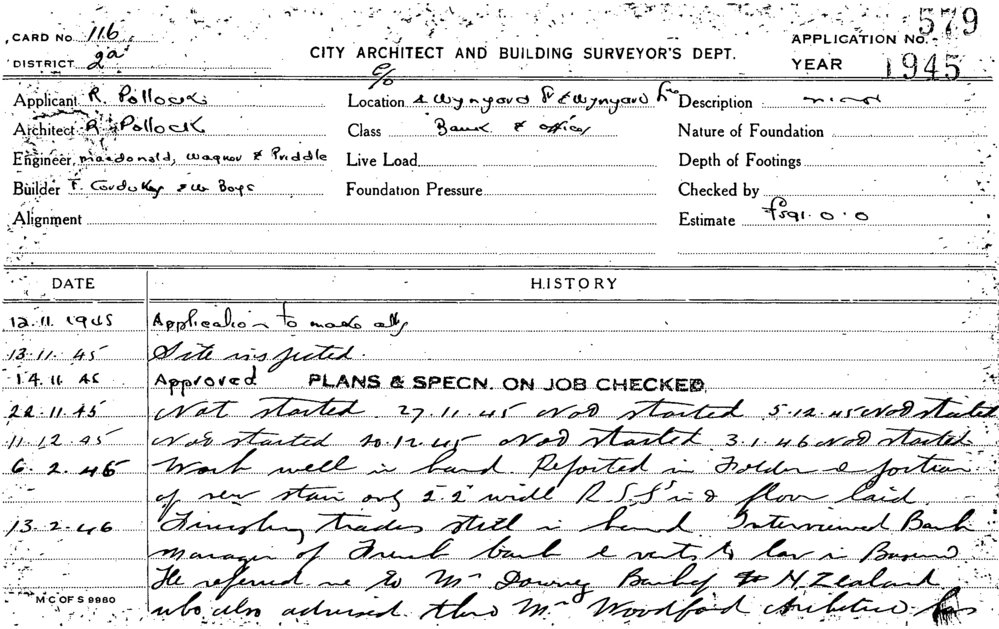 CARD No 116
APPLICATION No. 579
DISTRICT 2a
CITY ARCHITECT AND BUILDING SURVEYOR'S DEPT.
YEAR 1945
Applicant R. Pollock
Location c/o Wynyard St & Wynyard
Description
Architect R Pollock
Class Bank & offices
Nature of Foundation
Engineer Macdonald, Wagner & Priddle
Live Load
Depth of Footings
Builder F. Cordukes
Foundation Pressure
Checked by
Alignment
Estimate £591.0.0
DATE
HISTORY
12.11.1945 Application to make alts
13.11.45 Site inspected.
14.11.45 Approved PLANS & SPECN. ON JOB CHECKED
22.11.45 Not started 27.11.45 Not started 5.12.45 Not started
11.12.45 Not started 20.12.45 Not started 3.1.46 Not started
6.2.46 Work well in hand Reported in Folder e portion
of new stair only 2'2" wide R.S.J's in & floor laid
13.2.46 Finishing trades still in hand Interviewed Bank
Manager of French bank
He referred me to Mr Downey Bank of N Zealand
who also advised there Mr Woodford Architect has
M C OF S 9980